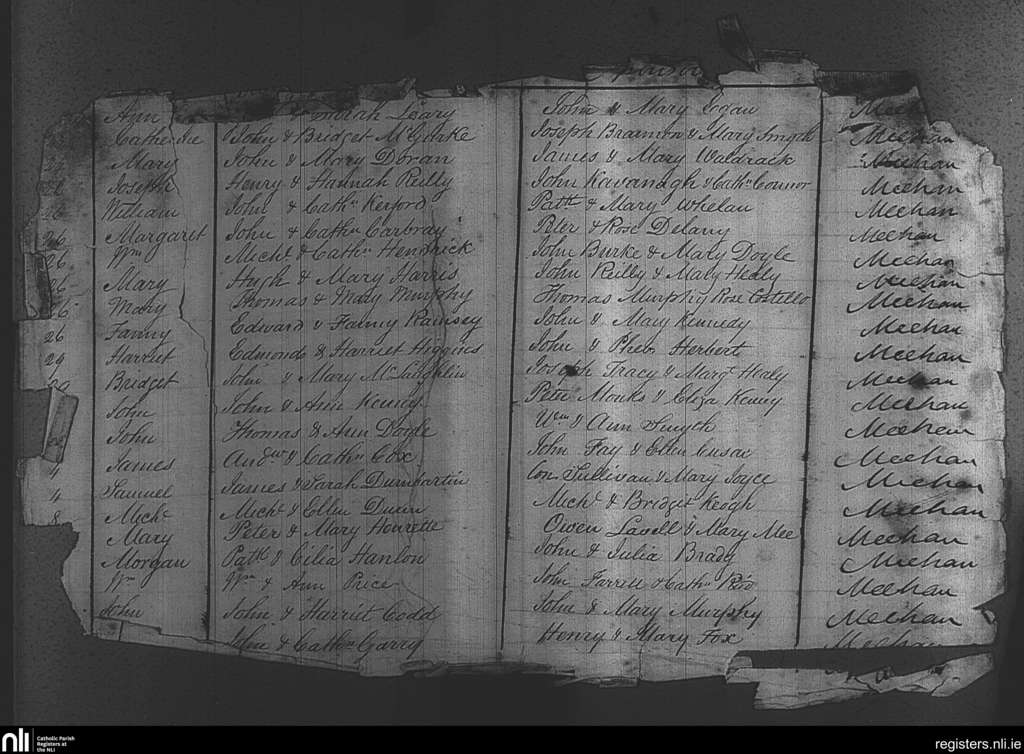 Sponsors
Ann Leary John & Mary Egan Meehan
Catherine John & Bridget McGlake Joseph Brannon & Mary Smyth Meehan
Mary John & Mary Doran James & Mary Waldrack Meehan
Joseph Henry & Hannah Reilly John Kavanagh & Cathn Connor Meehan
26 William John & Cathn Kerford Patk & Mary Whelan Meehan
26 Margaret John & Cathn Carbray Peter & Rose Delany Meehan
26 Wm Michl & Cathn Hendrick John Burke & Mary Doyle Meehan
26 Mary Hugh & Mary Harris John Reilly & Mary Healy Meehan
26 Mary Thomas & Mary Murphy Thomas Murphy Rose Costillo Meehan
26 Fanny Edward & Fanny Ramsey John & Mary Kennedy Meehan
29 Harriet Edmond & Harriet Higgins John & Pheb Herbert Meehan
Bridget John & Mary McLaughlin Joseph Tracy & Margt Healy Meehan
John John & Ann Kenny Peter Monks & Eliza Kenny Meehan
John Thomas & Ann Doyle Wm & Ann Smyth Meehan
James Andw & Cathn Cox John Fay & Ellen Cusac Meehan
4 Samuel James & Sarah Dumbartin Con Sullivan & Mary Joyce Meehan
4 Michl Michl & Ellen Dunn Michl & Bridget Keogh Meehan
8 Mary Peter & Mary Owen Lavell & Mary Mee Meehan
Morgan Patk & Cilia Hanlon John & Julia Brady Meehan
Wm Wm & Ann Price John Farrell & Cathn Meehan
John John & Harriet Codd John & Mary Murphy Meehan
John & Cathn Garry Henry & Mary Fox Meehan
nli Catholic Parish
Registers at
the NLI
registers.nli.ie